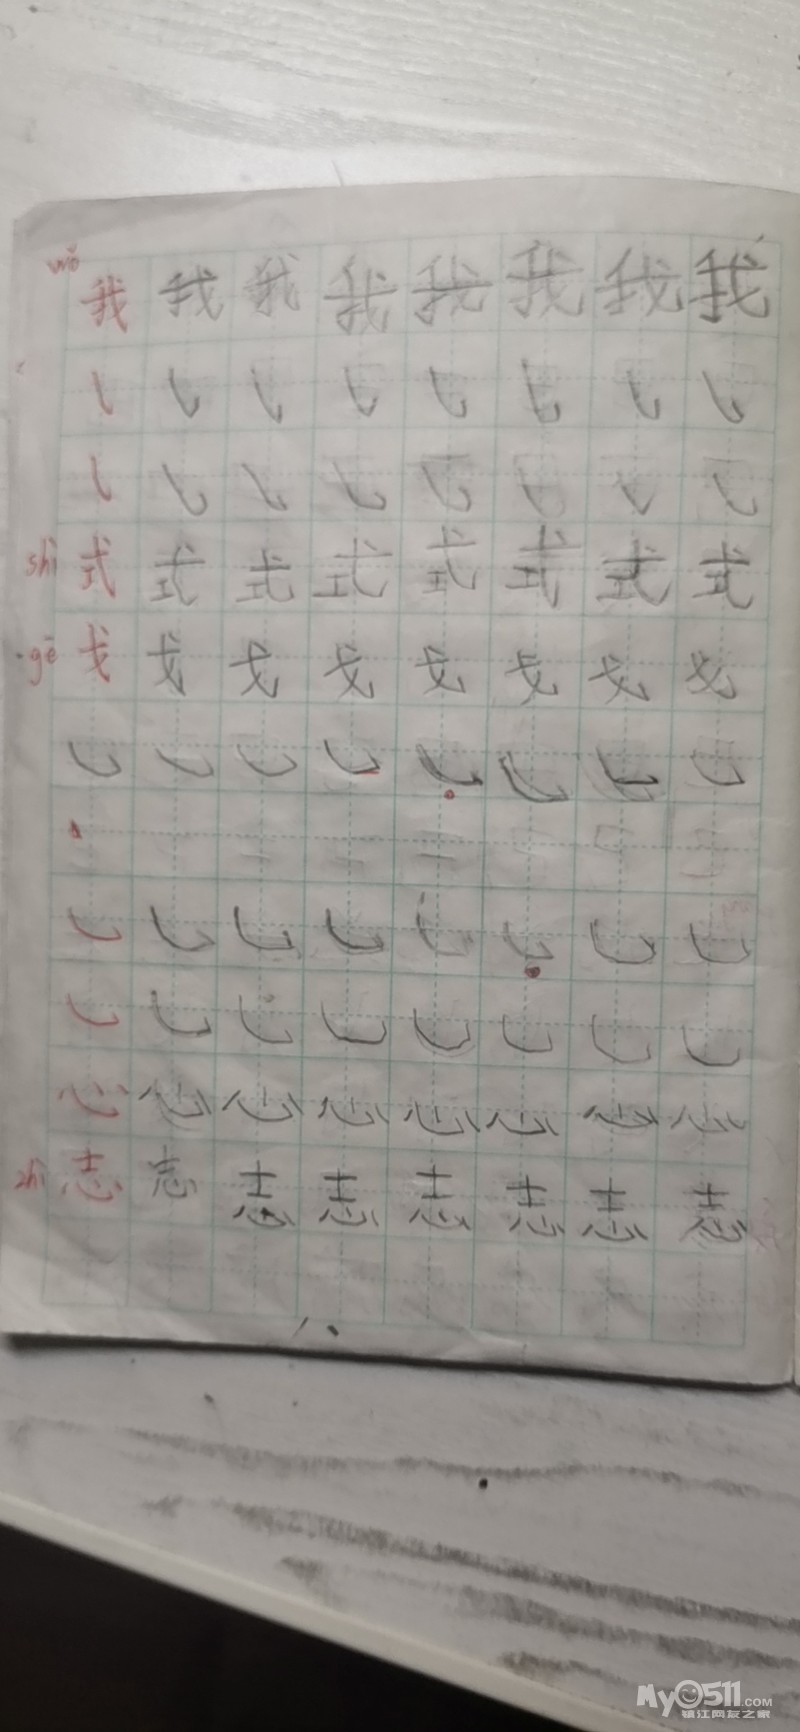 wǒ 我 我 我 我 我 我 我 我
㇂ ㇂ ㇂ ㇂ ㇂ ㇂ ㇂ ㇂
㇂ ㇂ ㇂ ㇂ ㇂ ㇂ ㇂ ㇂
shì 式 式 式 式 式 式 式 式
gē 戈 戈 戈 戈 戈 戈 戈 戈
㇃ ㇃ ㇃ ㇃ ㇃ ㇃ ㇃ ㇃
㇃ ㇃ ㇃ ㇃ ㇃ ㇃ ㇃ ㇃
㇃ ㇃ ㇃ ㇃ ㇃ ㇃ ㇃ ㇃
心 心 心 心 心 心 心 心
zhì 志 志 志 志 志 志 志 志
My0511.COM
镇江网友之家